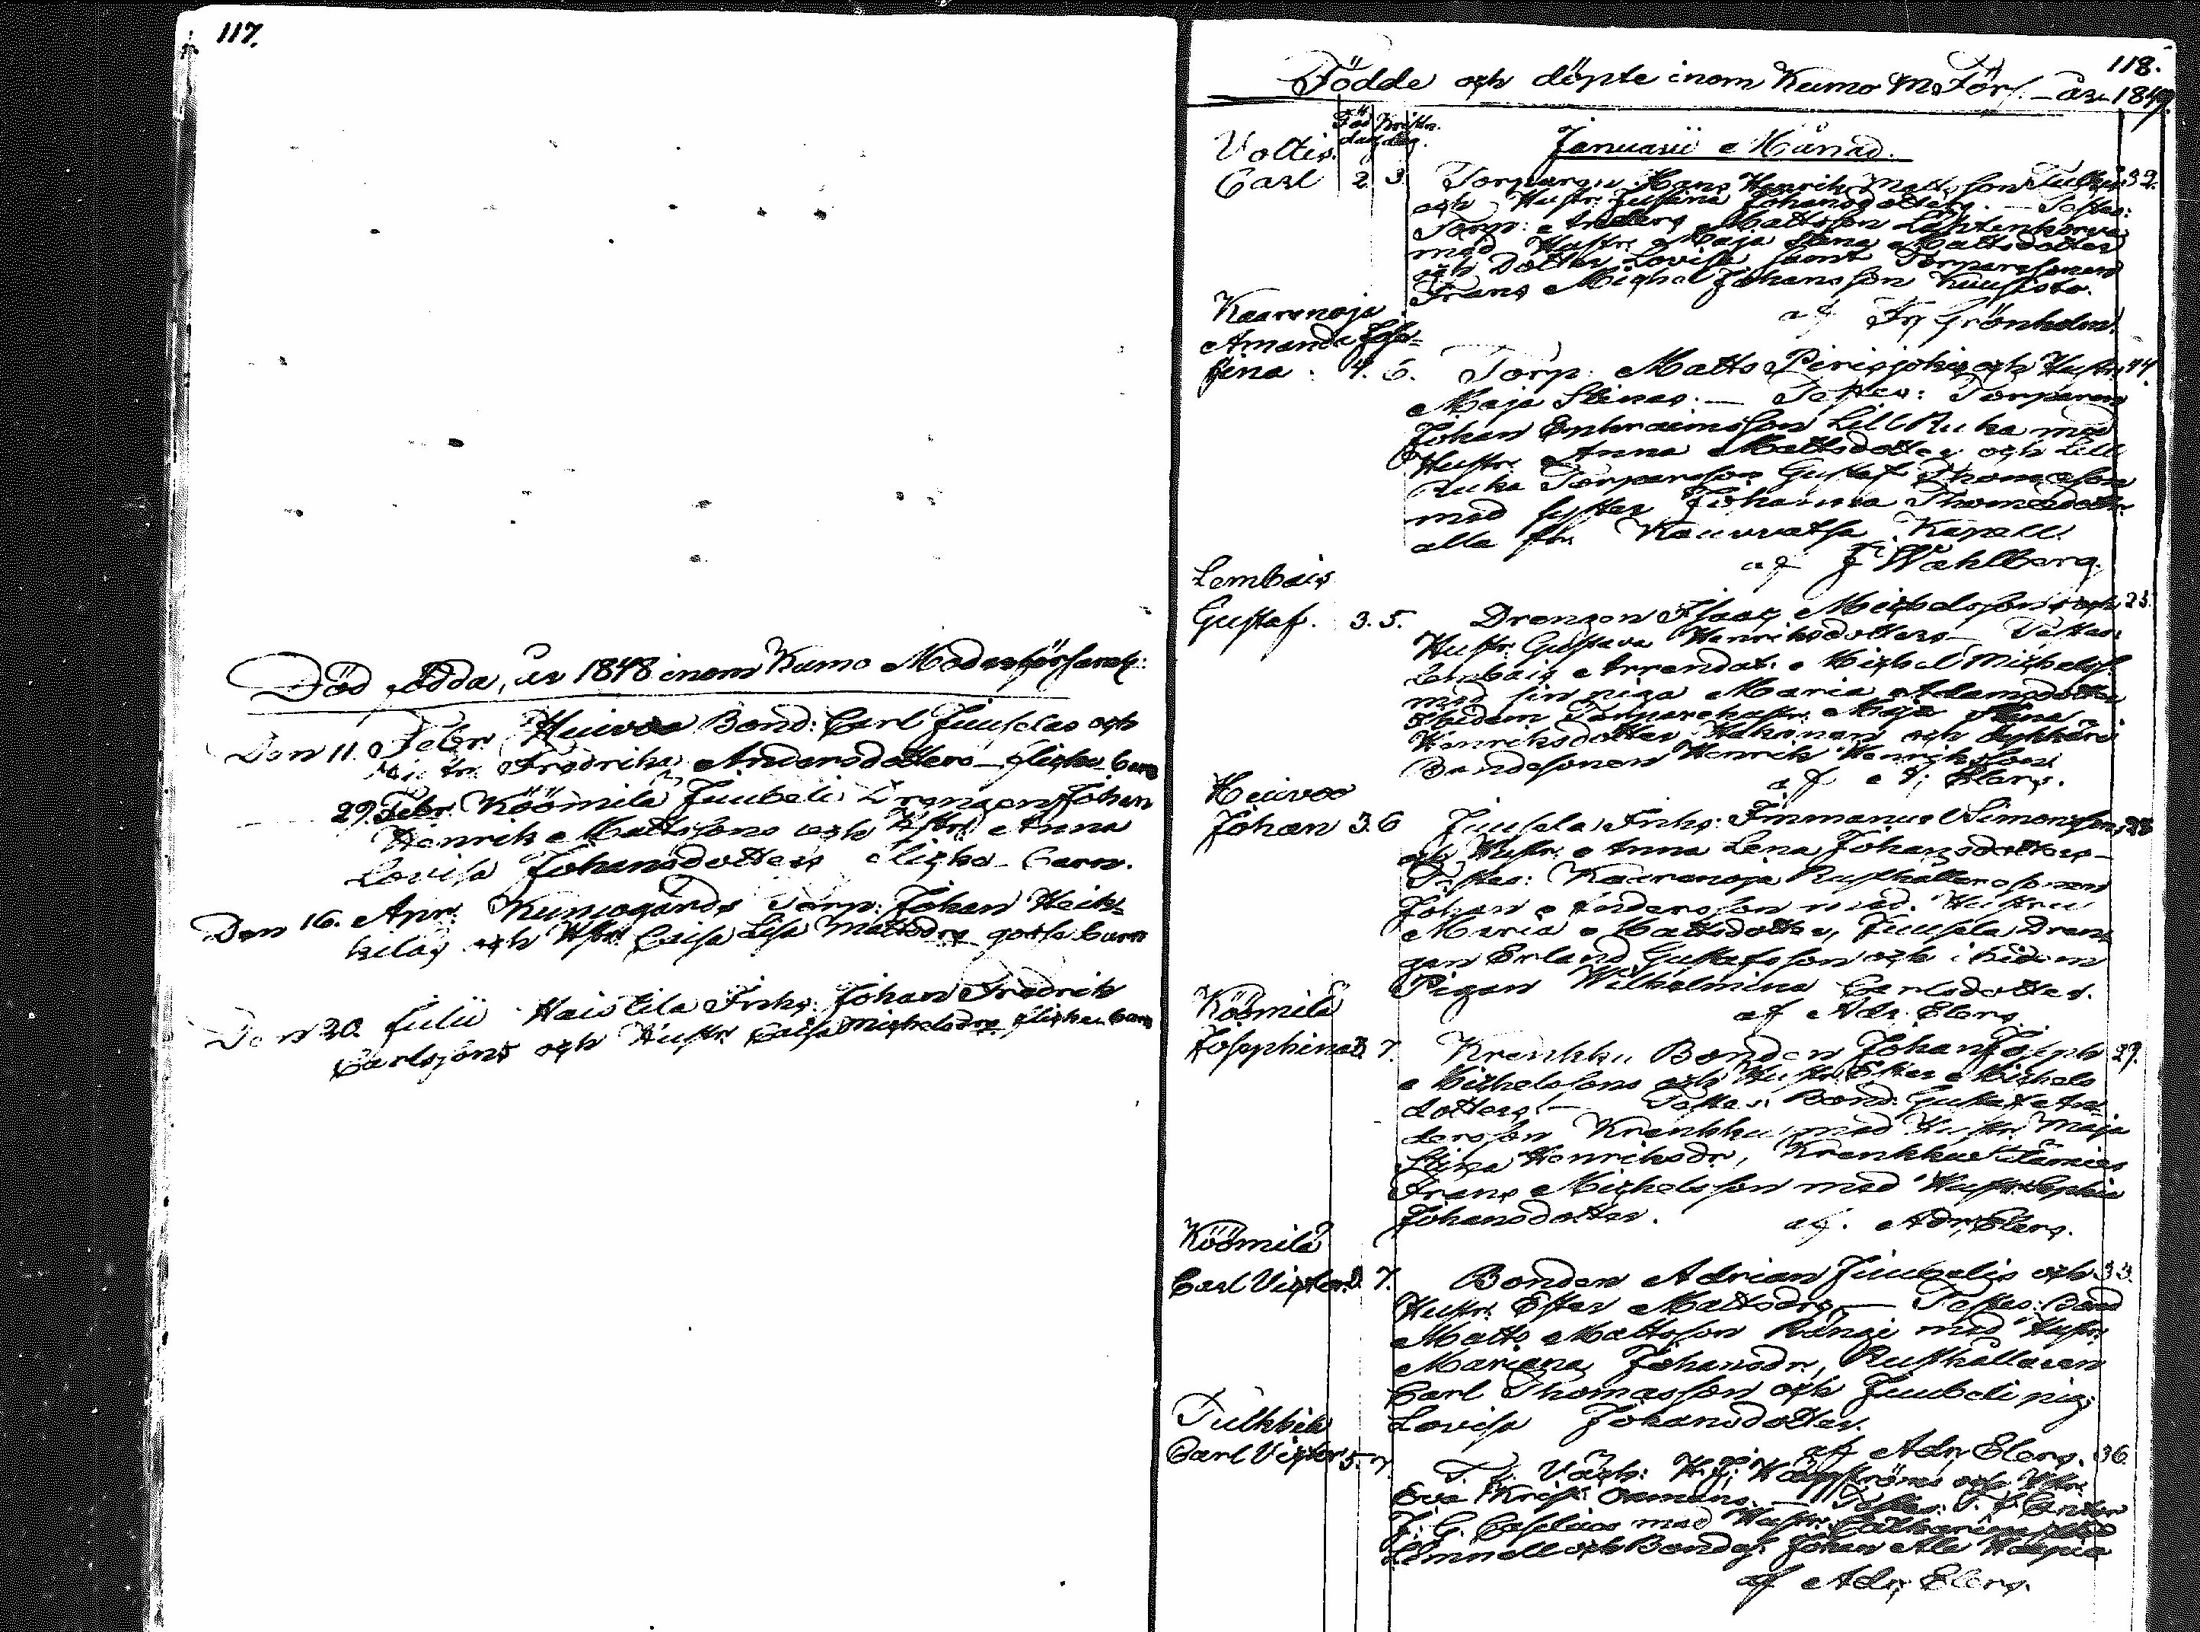 117.
Död födda, år 1848 inom Kumo Moderförsamlg:
Den 11. Febr. Heivoo Bond: Carl Juuselas och
Hustr. Fredrika Andersdotters flicke barn
29. Febr. Köömilä Juubeli Drengen Johan
Henrik Mattssons och Hstr. Anna
Lovisa Johansdotters flicke barn.
Den 16. Apr. Kumogårds Torp: Johan Heik-
kilas och Hstr. Caisa Lisa Mattsdrs gosse barn
Den 30. Julii Haistila Inhs: Johan Fredrik
Carlssons och Hustr. Caisa Michelsdrs flicke barn
118.
Födde och döpte inom Kumo M. Förs. år 1849.
Föd. Krist.
dag dag.
Voltis Januarii Månad.
Carl 2. 3. Torparen Hans Henrik Mattsson 32.
och Hustr. Johansdotters. Testes:
Torp: Anders Mattsson
med Hustr. Maja Stina Mattsdotter
och Dotter Lovisa samt Torparesonen
Frans Michel Johansson Kuusisto.
af Grönholm.
Kaarenoja
Amanda Jose-
fina. 4. 6. Torp. Matts Pirisjokis och Hustr. 44.
Maja Stinas. — Testes: Torparen
Johan Ephraimsson Lill Ruka med
Hustr. Anna Mattsdotter och Lill
Ruka Torpareson Gustaf Thomasson
med syster Johanna Thomasdotr.
alla fr. Kauvatsa Kapell.
af J Wahlberg.
Lembois
Gustaf. 3. 5. Drengen Isaac Michelssons och 23.
Hustr. Gustava Henriksdotters — Testes:
Lembois Arrendat: Michel Michelss.
med sin piga Maria Adamsdotter
Torparehustr. Maja Stina
Henriksdotter och
Bondesonen Henrik Henriksson.
af A. Elers.
Heivoo
Johan 3. 6 Juusela Inhs: Immanuel Simonssons 28
och Hustr. Anna Lena Johansdotters —
Testes: Kaarenoja Rusthållaresonen
Johan Andersson med Hustru
Maria Mattsdotter, Juusela Dren-
gen Erland Gustafsson och
Pigan Wilhelmina Carlsdotter.
af Adr. Elers.
Köömilä
Josephina 3. 7. Krenkku Bonden Johan Joseph 29.
Michelssons och Hustr. Ester Michels
dotters. — Testes: Bond: Gustaf An-
dersson Krenkku med Hustr. Maja
Stina Henriksdr, Krenkku
Frans Michelsson med Hustr. Sophia
Johansdotter. af. Adr. Elers.
Köömilä
Carl Victor. 2. 7. Bonden Adrian Juubelis och 33.
Hustr. Ester Mattsdrs. — Testes: Bond
Matts Mattsson med Hustr.
Mariana Johansdr, Rusthållaren
Carl Thomasson och Juubeli pig:
Lovisa Johansdotter.
af Adr. Elers. 36.
Tulkkila
Carl Victor 5. 7. och Hstr.
Eva Testes:
J. G. Caselius med Hustr. Catharina
Limnell och Johan
af Adr. Elers.